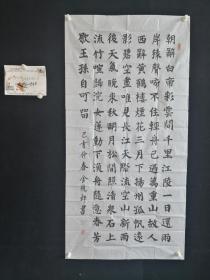 朝辭白帝彩雲間千里江陵一日還兩
岸猿聲啼不住輕舟已過萬重山故人
西辭黄鶴樓煙花三月下揚州孤帆遠
影碧空盡唯見長江天際流空山新雨
後天氣晚來秋明月松間照清泉石上
流竹喧歸浣女蓮動下漁舟隨意春芳
歇王孫自可留 己亥仲春金